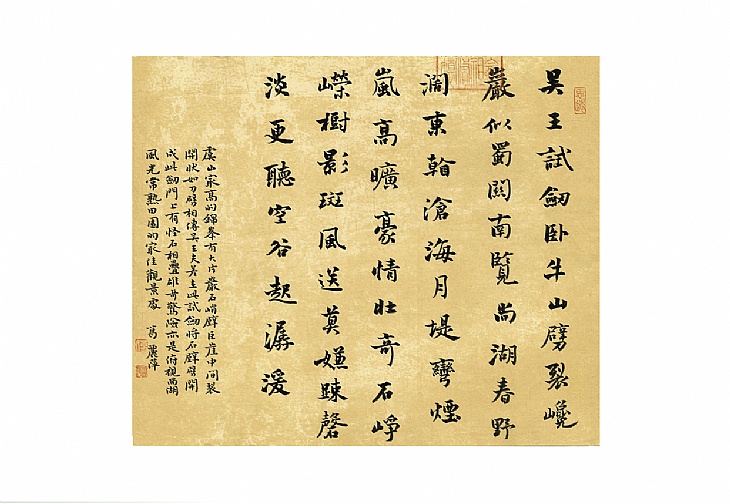 吳王試劒卧牛山劈裂巉
巖似蜀関南覽尚湖春野
濶東翰滄海月堤彎煙
嵐高曠豪情壯奇石崢
嶸樹影斑風送莫嫌踈磬
淡更聽空谷起潺湲
虞山最高的錦峯有大片巖石峭壁巨崖中间裂
開狀如刀劈相傳吳王夫差在此試劒將石壁劈開
成此劒門上有怪石相疊雄奇驚險亦是俯視尚湖
風光常熟田園的最佳觀景處 葛麗萍